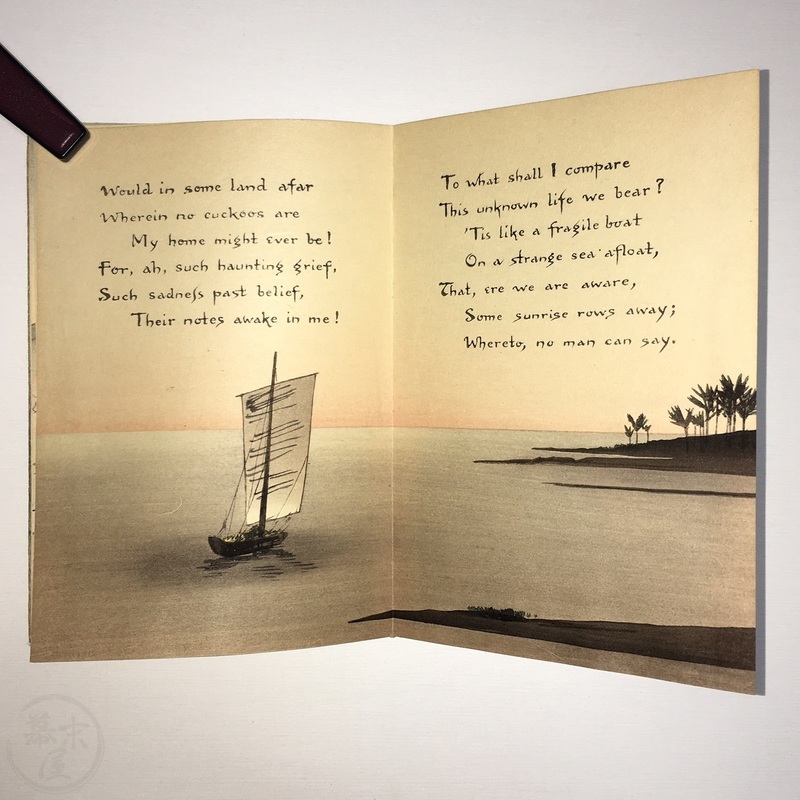 Would in some land afar
Wherein no cuckoos are
My home might ever be!
For, ah, such haunting grief,
Such sadness past belief,
Their notes awake in me!
To what shall I compare
This unknown life we bear?
'Tis like a fragile boat
On a strange sea afloat,
That, ere we are aware,
Some sunrise rows away;
Whereto, no man can say.
幕末屋